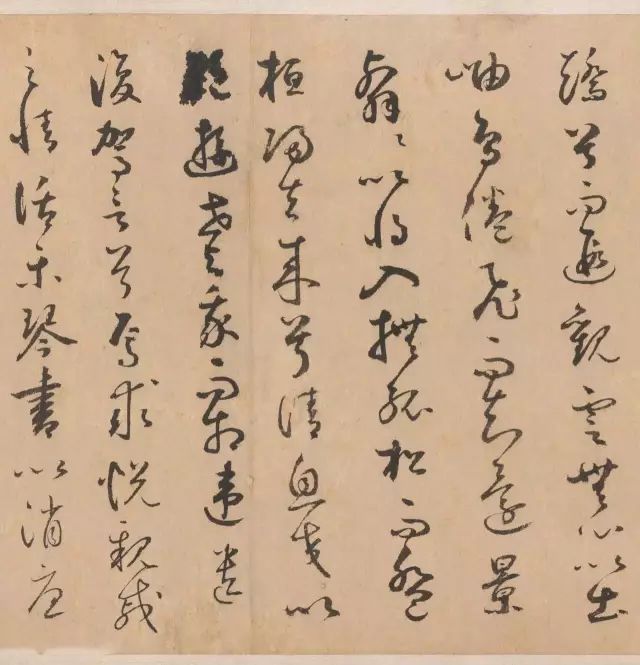 矯首而遐觀雲無心以出
岫鳥倦飛而知還景
翳〻以將入撫孤松而盤
桓歸去來兮請息交以
遊世與我而相違
復駕言兮焉求悅親戚
之情話樂琴書以消憂